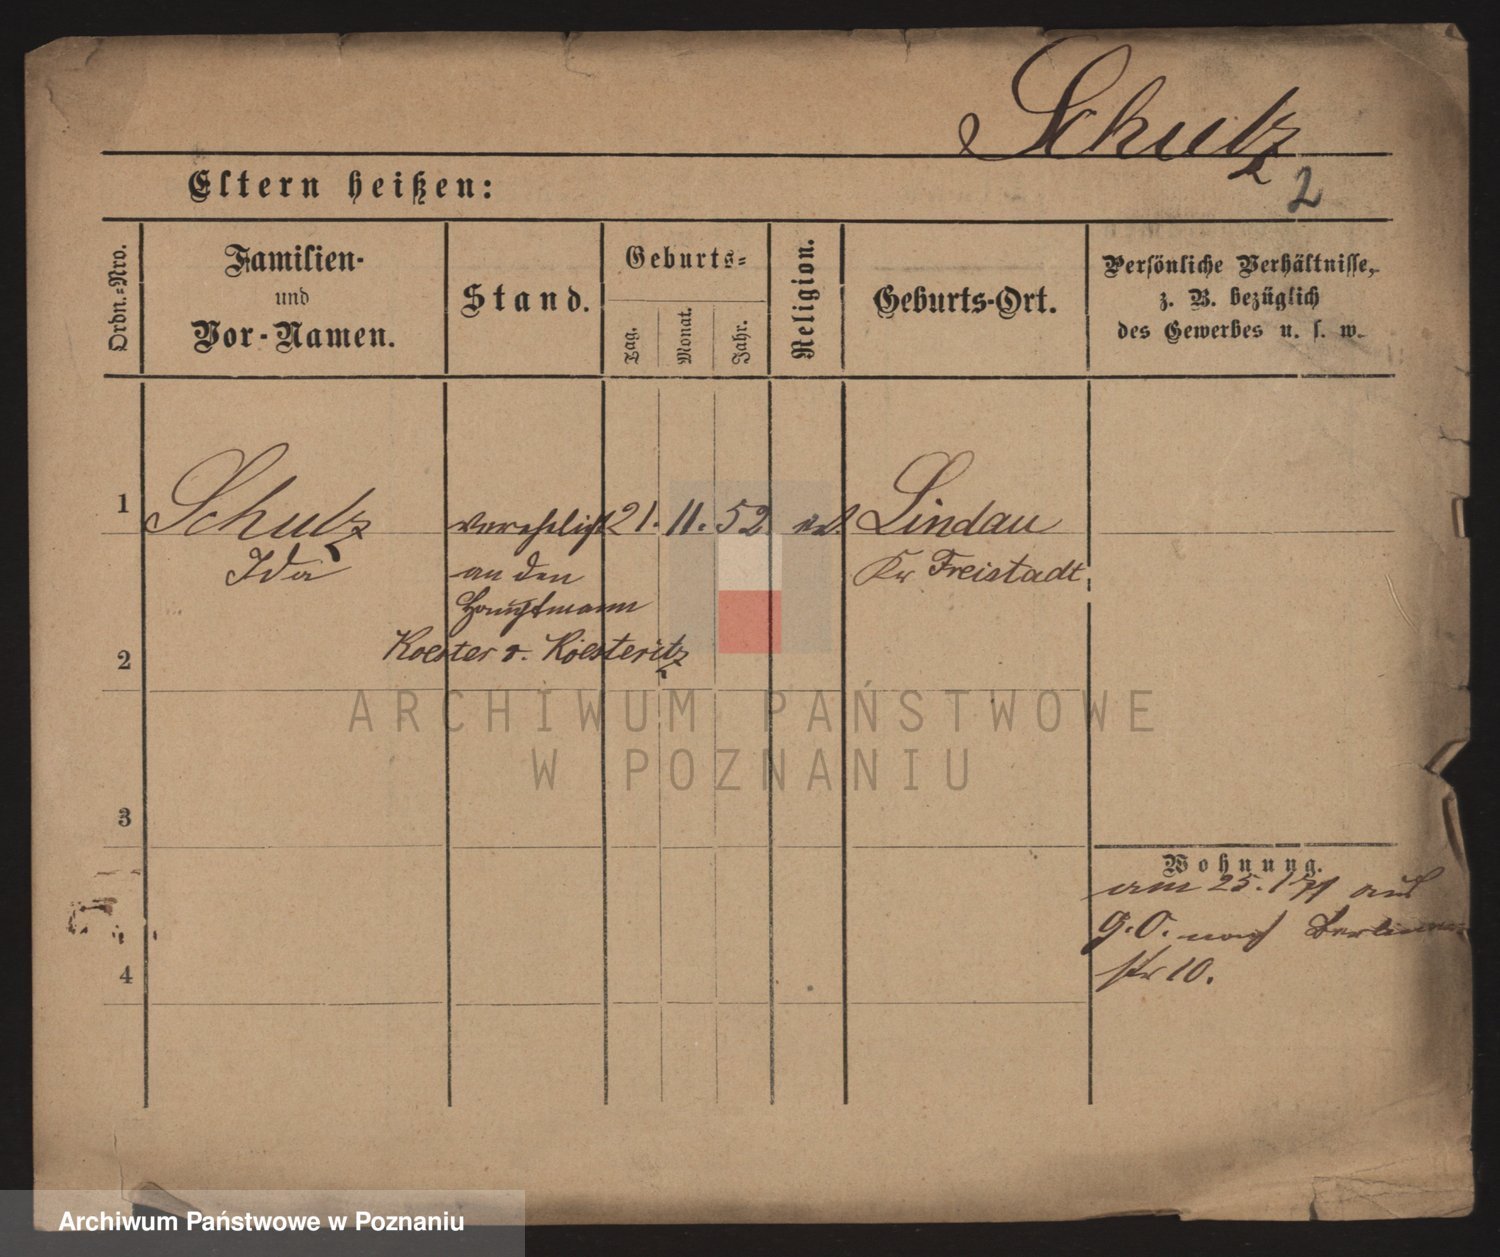 Schulz
2
Eltern heißen:
Ordn.-Nro.
Familien-
und
Vor-Namen.
Stand.
Geburts-
Tag.
Monat.
Jahr.
Religion.
Geburts-Ort.
Persönliche Verhältnisse,
z. B. bezüglich
des Gewerbes u. s. w.
1
Schulz
verehelicht
21.
11.
52
Lindau
Ida
an den
Kr Freistadt
Hauptmann
2
Koester v. Koesteritz
ARCHIWUM PAŃSTWOWE
W POZNANIU
3
Wohnung.
am 25.
G.O. nach Berliner
4
str 10.
Archiwum Państwowe w Poznaniu